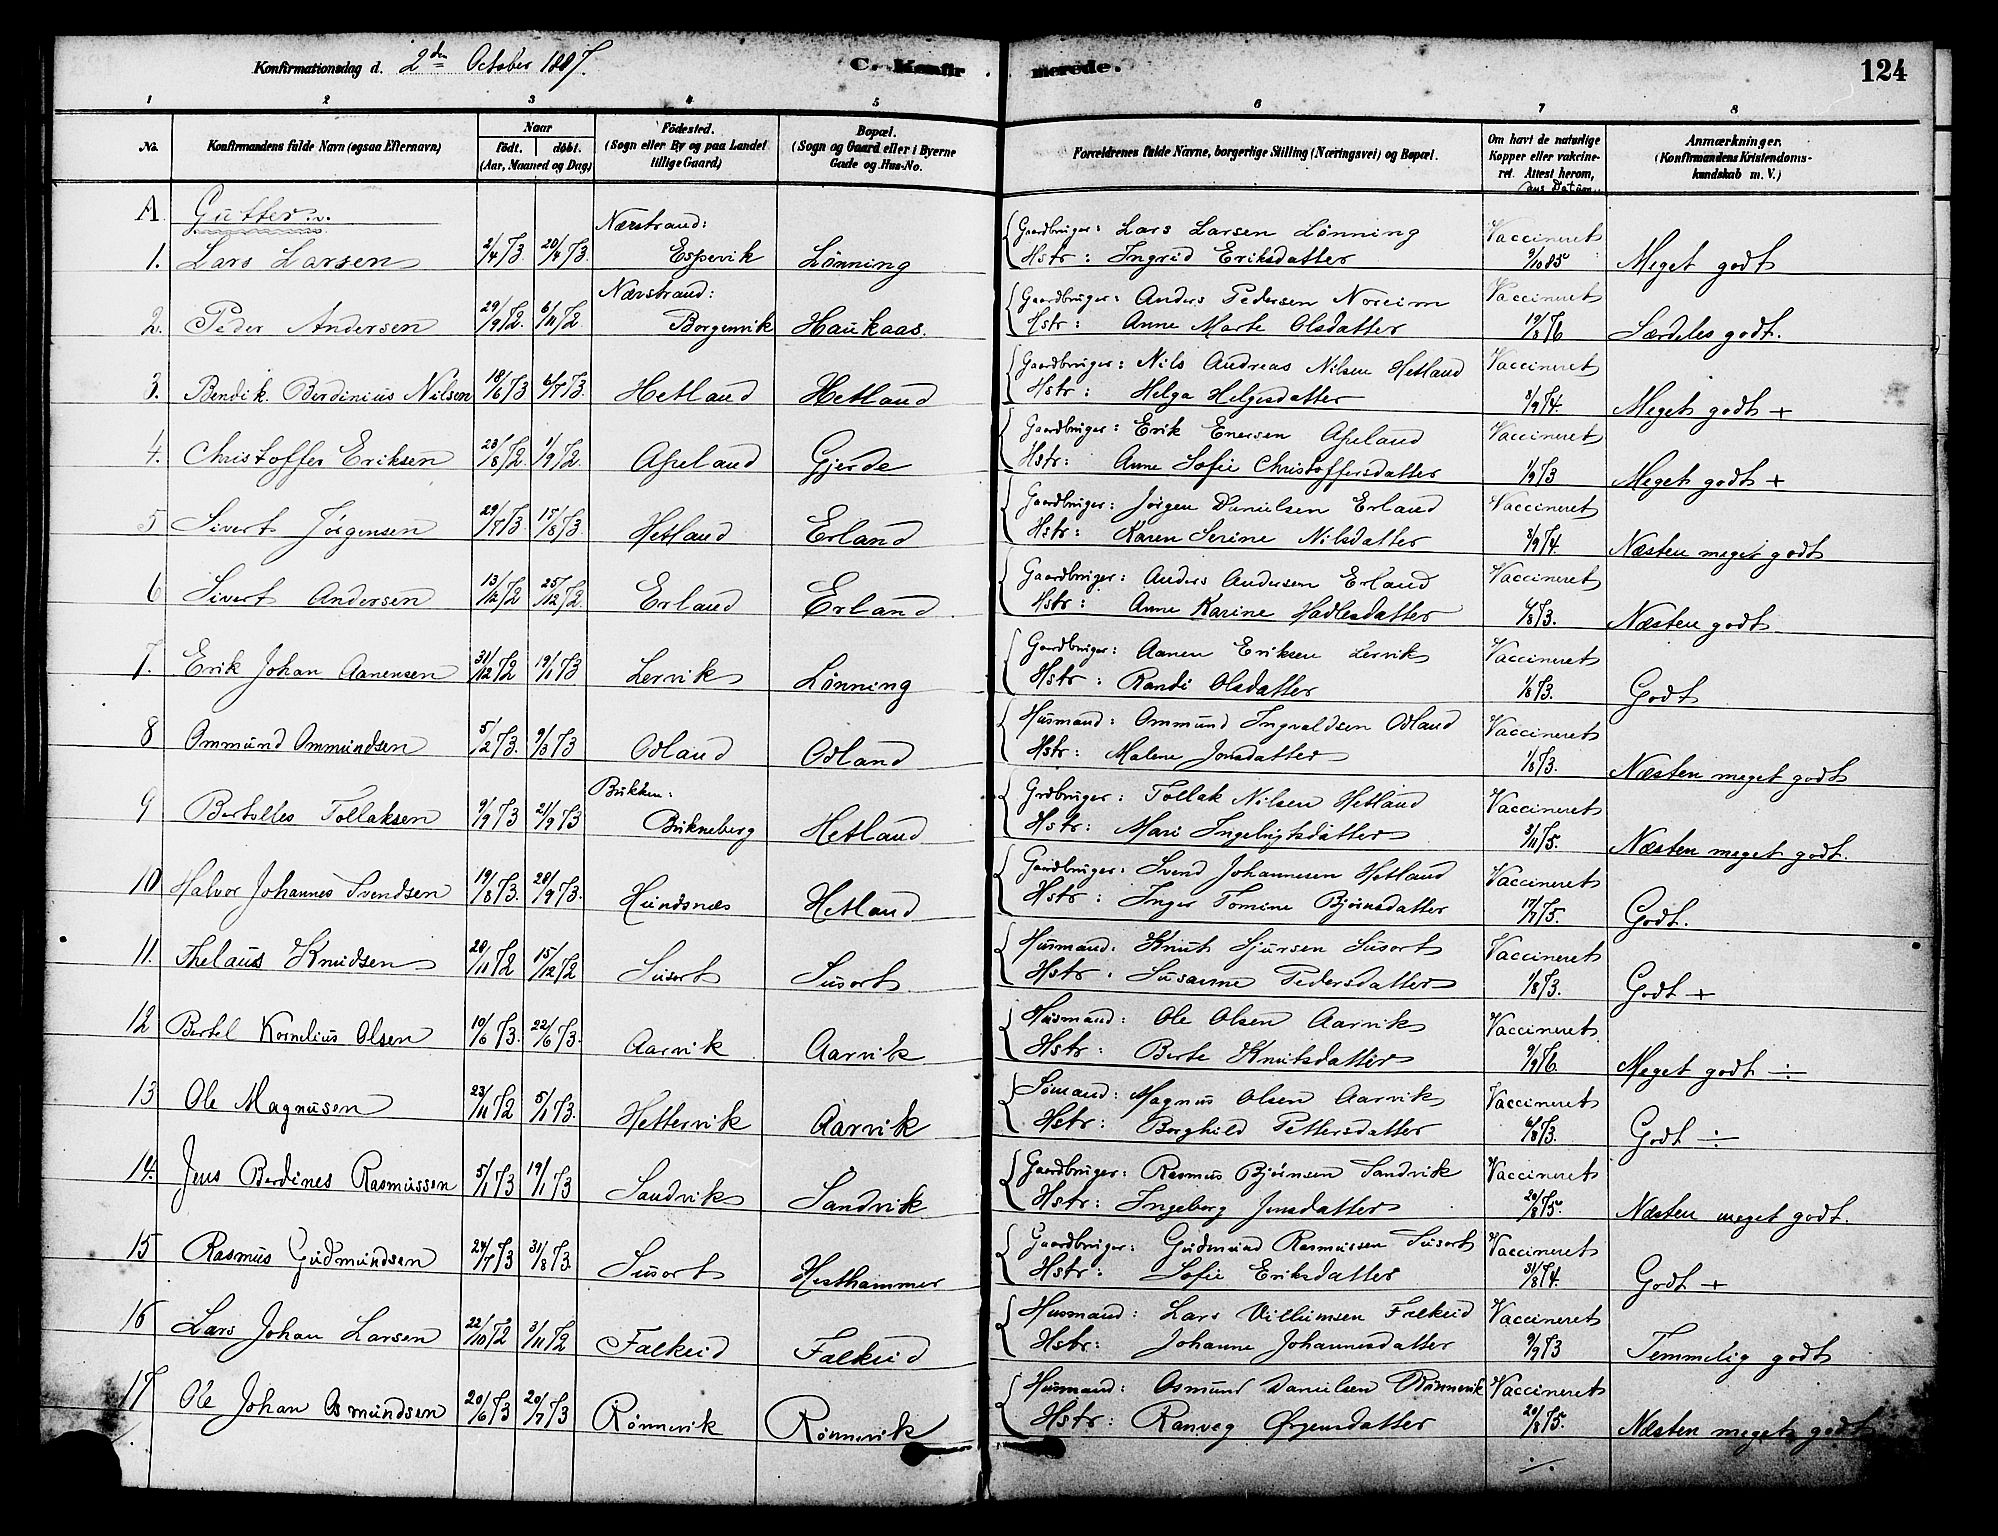 Konfirmationsdag d. 2den October 1887.
C. Konfirmerede.
124
1 2 3 4 5 6 7 8
No. Konfirmandens fulde Navn (ogsaa Efternavn) Naar født. døbt. (Aar, Maaned og Dag) Fødested. (Sogn eller By og paa Landet tillige Gaard) Bopæl. (Sogn og Gaard eller i Byerne Gade og Hus-No. Forældrenes fulde Navne, borgerlige Stilling (Næringsvei) og Bopæl. Om havt de naturlige Kopper eller vakcineret. Attest herom, dens Datum. Anmærkninger. (Konfirmandens Kristendomskundskab m. V.)
A. Gutter.
1. Lars Larsen 2/4 73 20/4 73. Nærstrand: Espevik Lønning Gaardbruger: Lars Larsen Lønning
Hstr: Ingrid Eriksdatter Vaccineret 9/10 85 Meget godt
2. Peder Andersen 29/9 72. 6/11 72 Nærstrand: Borgenvik Haukaas. Gaardbruger: Anders Pedersen Noreim
Hstr: Anne Marte Olsdatter Vaccineret 19/8 76 Særdeles godt.
3. Bendik Berdinius Nilsen 18/6 73 6/7 73. Hetland Hetland Gaardbruger: Nils Andreas Nilsen Hetland
Hstr: Helga Helgesdatter Vaccineret 3/9 74. Meget godt +
4. Christoffer Eriksen 23/8 72 1/9 72. Apeland Gjerde Gaardbruger: Erik Enersen Apeland
Hstr: Anne Sofie Christoffersdatter Vaccineret 1/9 73 Meget godt +
5 Sivert Jørgensen 29/7 73. 17/8 73. Hetland Erland Gaardbruger: Jørgen Danielsen Erland
Hstr: Karen Serine Nilsdatter Vaccineret 3/9 74. Næsten meget godt
6 Sivert Andersen 13/12 72 25/12 72 Erland Erland Gaardbruger: Anders Andersen Erland
Hstr: Anne Karine Hadlesdatter Vaccineret 6/8 73. Næsten godt
7. Erik Johan Aanensen 31/12 72 19/1 73 Lervik Lønning Gaardbruger: Aanen Eriksen Lervik
Hstr: Randi Olsdatter Vaccineret 1/8 73. Godt
8 Ommund Ommundsen 5/2 73. 9/3 73 Odland Odland Husmand: Ommund Ingvaldsen Odland
Hstr: Malene Jonsdatter Vaccineret 1/8 73. Næsten meget godt
9 Bertolles Tollaksen 9/9 73 21/9 73 Bukken: Bukneberg Hetland Grdbruger: Tollak Nilsen Hetland
Hstr: Mari Ingebrigtsdatter Vaccineret 3/11 75. Næsten meget godt.
10 Halvor Johannes Svendsen 19/8 73. 28/9 73. Hundsnæs Hetland Gaardbruger: Svend Johannesen Hetland
Hstr: Inger Tomine Bjørnsdatter Vaccineret 17/7 75. Godt.
11. Thelaus Knudsen 20/11 72 15/12 72 Susort Susort Husmand: Knut Sjursen Susort
Hstr: Susanne Pedersdatter Vaccineret 1/8 73. Godt +
12 Bertel Kornelius Olsen 10/6 73. 22/6 73. Aarvik Aarvik Husmand: Ole Olsen Aarvik
Hstr: Berte Knutsdatter Vaccineret 9/9 76. Meget godt ÷
13 Ole Magnusen 23/11 72 5/1 73. Hettervik Aarvik Sømand: Magnus Olsen Aarvik
Hstr: Borghild Pettersdatter Vaccineret 6/8 73. Godt ÷
14. Jens Berdines Rasmussen 5/1 73 19/1 73 Sandvik Sandvik Gaardbruger: Rasmus Bjørnsen Sandvik
Hstr: Ingeborg Jonsdatter Vaccineret 20/8 75. Næsten meget godt.
15 Rasmus Gudmundsen 24/7 73 31/8 73. Susort Hesthammer Gaardbruger: Gudmund Rasmussen Susort
Hstr: Sofie Eriksdatter Vaccineret 31/8 74. Godt +
16 Lars Johan Larsen 22/10 72 3/11 72 Falkeid Falkeid Husmand: Lars Villumsen Falkeid
Hstr: Johanne Johannesdatter Vaccineret 9/9 73 Temmelig godt
17 Ole Johan Osmundsen 20/6 73 20/7 73 Rønnevik Rønnevik Husmand: Osmund Danielsen Rønnevik
Hstr: Ranveg Ørjensdatter Vaccineret 20/8 75. Næsten meget godt